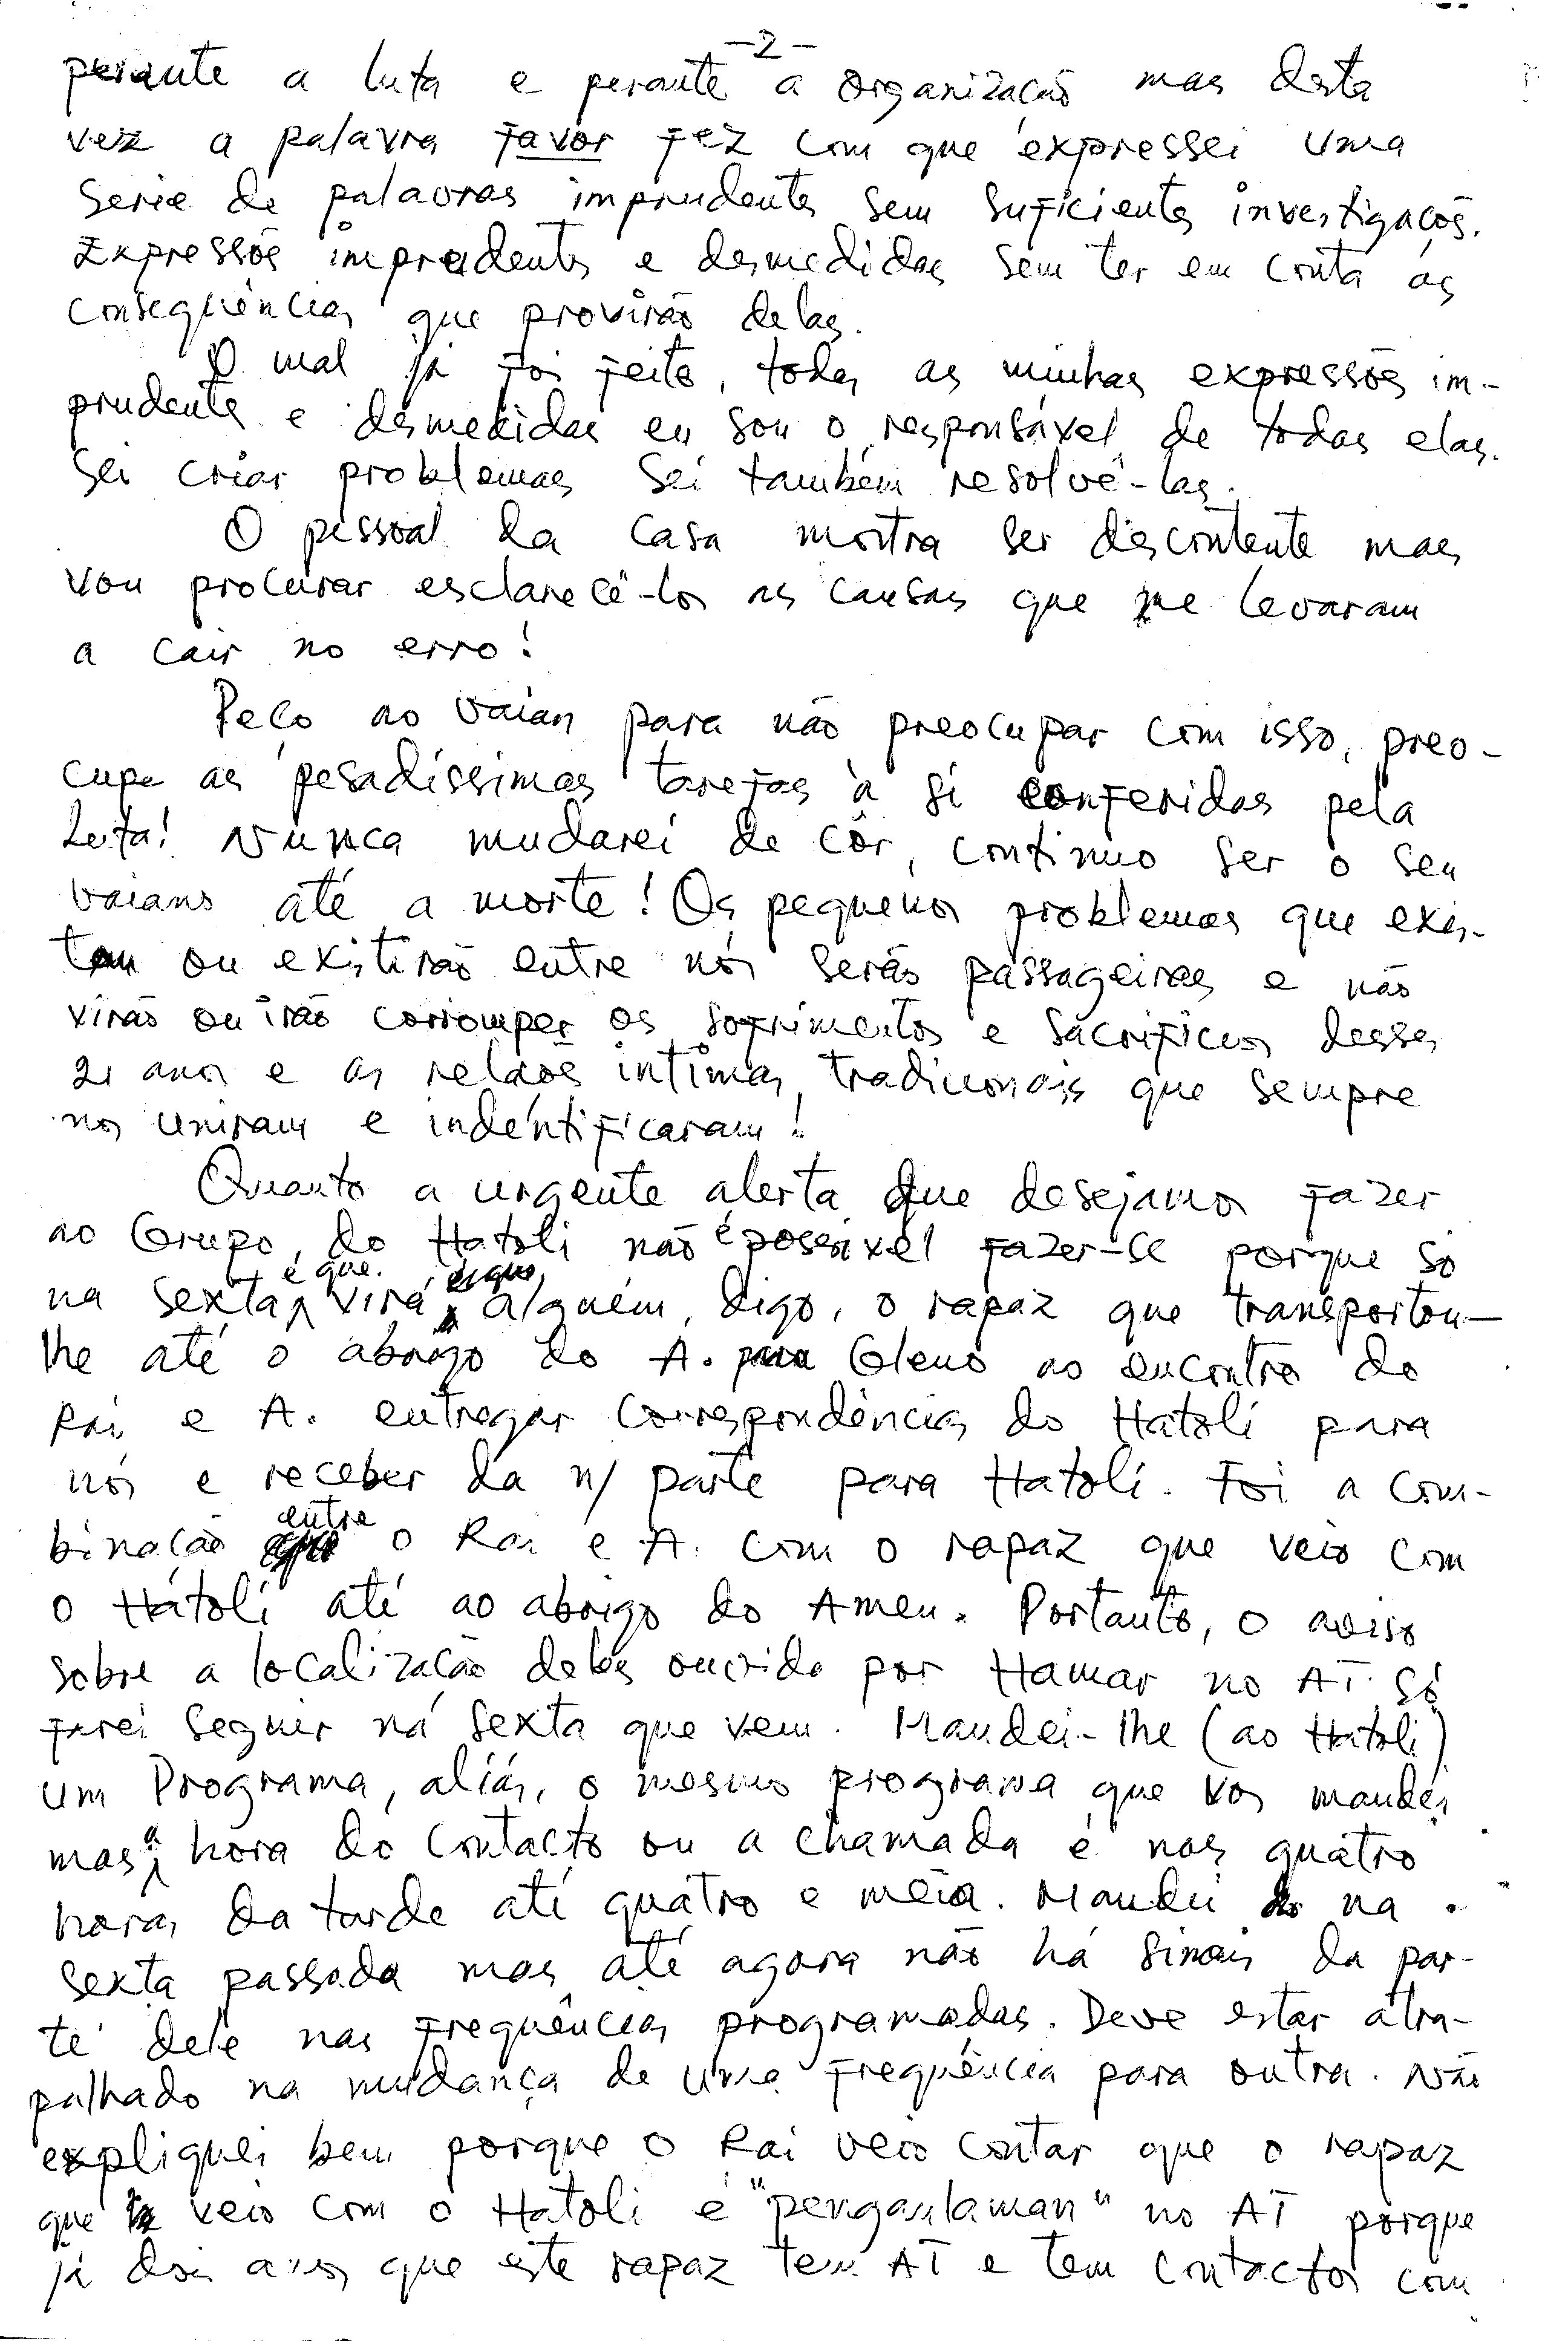 -2-
perante a luta e perante a organizacão mas desta
vez a palavra favor fez com que expressei uma
serie de palavras imprudentes sem suficientes investigacõs.
Expressõs imprudentes e desmedidas sem ter em conta as
conseqüências que provirão delas.
O mal já foi feito, todas as minhas expressões im-
prudentes e desmedidas eu sou o responsável de todas elas.
Sei criar problemas sei também resolvê-las.
O pessoal da casa mostra ser descontente mas
vou procurar esclarecê-los as causas que me levaram
a cair no erro!
Peço ao vaian para não preocupar com isso, preo-
cupe as pesadíssimas tarefas à si conferidas pela
Luta! Nunca mudarei de côr, continuo ser o seu
vaiano até a morte! Os pequenos problemas que exis-
tem ou existirão entre nós serão passageiras e não
virão ou irão corromper os sofrimentos e sacrificios desses
21 anos e as relacões intimas tradicionais que sempre
nos uniram e indentificaram!
Quanto a urgente alerta que desejamos fazer
ao Grupo do Hatoli não é possível fazer-se porque só
na sexta é que virá alguém, digo, o rapaz que transportou-
lhe até o abrigo do A. para Gleno ao encontro do
Rai e A. entregar correspondências do Hatoli para
nós e receber da n/ parte para Hatoli. Foi a com-
binacão entre o Rai e A. com o rapaz que veio com
o Hatoli até ao abrigo do Ameu. Portanto, o aviso
sobre a localizacão deles ouvido por Hamar no AT só
farei seguir na sexta que vem. Mandei-lhe (ao Hatoli)
um Programa, aliás, o mesmo programa que vos mandei
mas a hora do contacto ou a chamada é nas quatro
horas da tarde até quatro e meia. Mandei na
sexta passada mas até agora não há sinais da par-
te dele nas frequências programadas. Deve estar atra-
palhado na mudança de uma frequência para outra. Não
expliquei bem porque o Rai veio contar que o rapaz
que veio com o Hatoli é "pengaulaman" no AT porque
já dois anos que este rapaz tem AT e tem contactos com